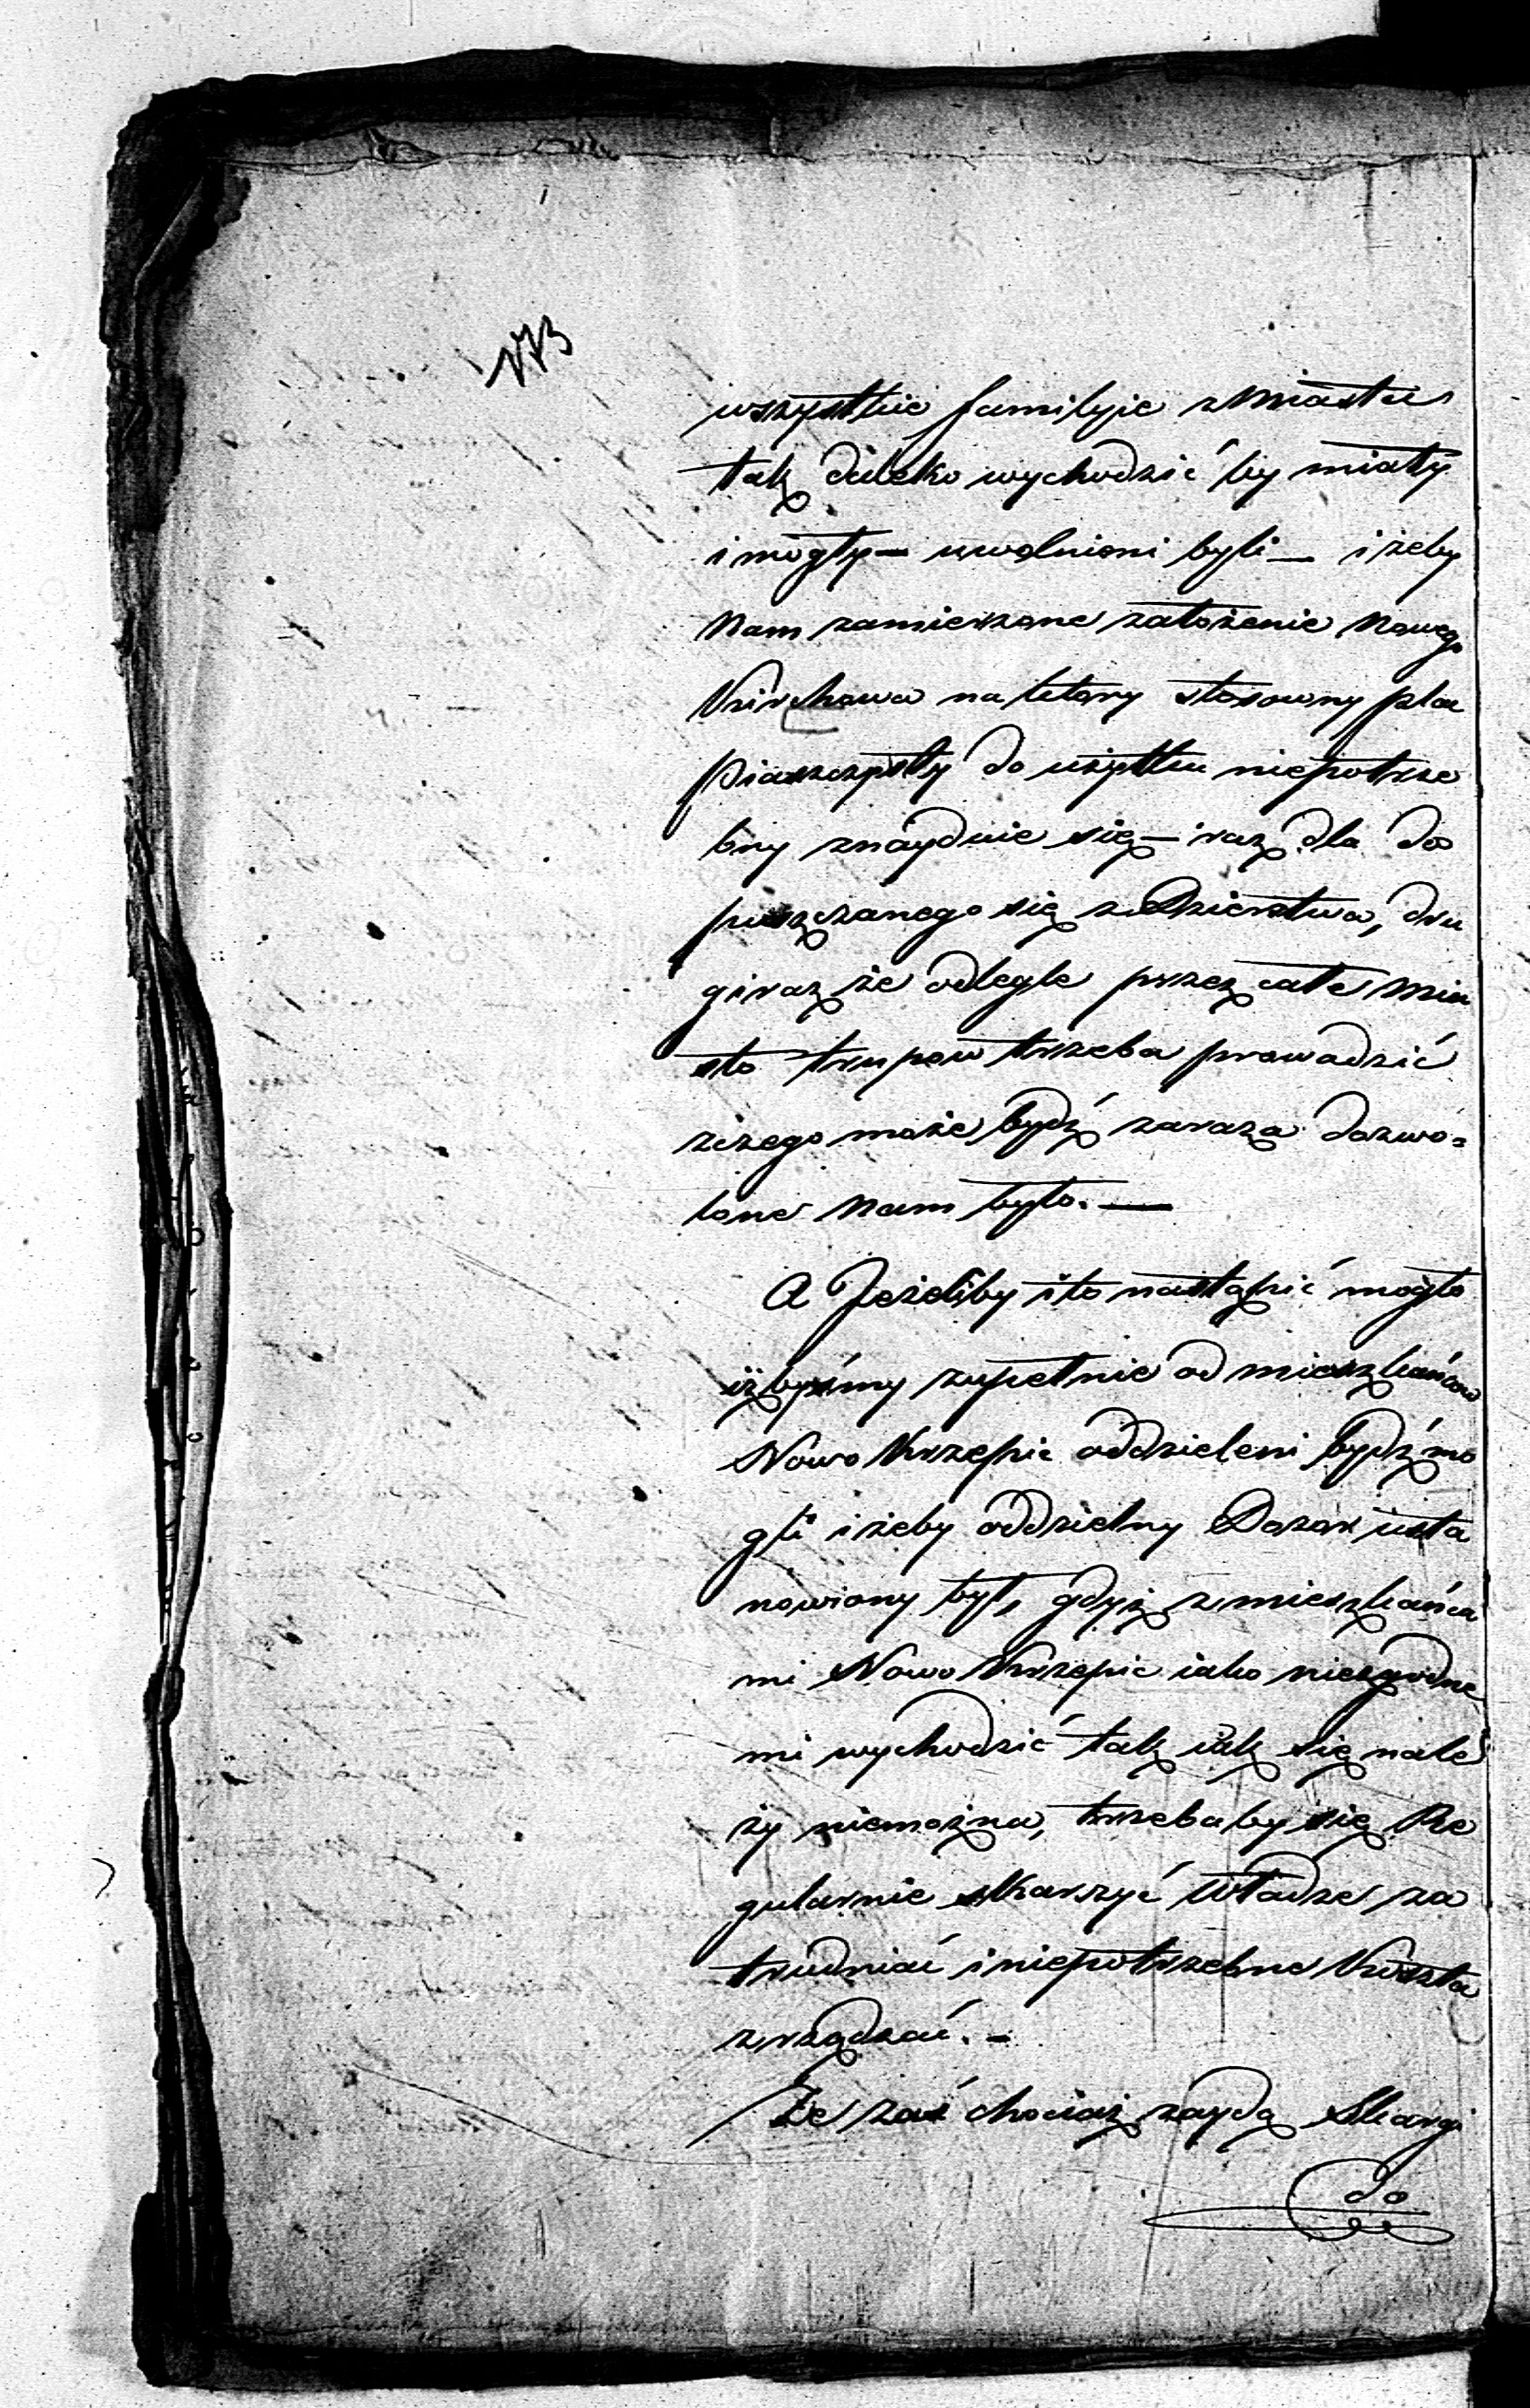 wszystkie familyje z Miasta
tak daleko wychodzić by miały
i mogły — uwolnieni byli — i żeby
Nam zamierzone założenie Nowego
Kirchowa na który stosowny plac
piaszczysty do użytku niepotrze
bny znayduie się — raz dla do
puszczanego się zdzierstwa, dru
gi raz że odległe przez całe Mia
sto trupow trzeba prowadzić
z czego może bydź zaraza dozwo=
lone Nam było. —
A Jeżeliby i to nastąpić mogło
iżbyśmy zupełnie od mieszkańców
Nowo Krzepic oddzieleni bydź mo
gli i żeby oddzielny Dozor usta
nowiony był, gdyż z mieszkańca
mi Nowo Krzepic iako niezgodne
mi wychodzić tak iak się nale
ży niemożna, trzeba by się Re
gularnie skarzyć Władze za
trudniać i niepotrzebne Koszta
zrządzać. —
Że zaś chociaż zaydą Skargi
do